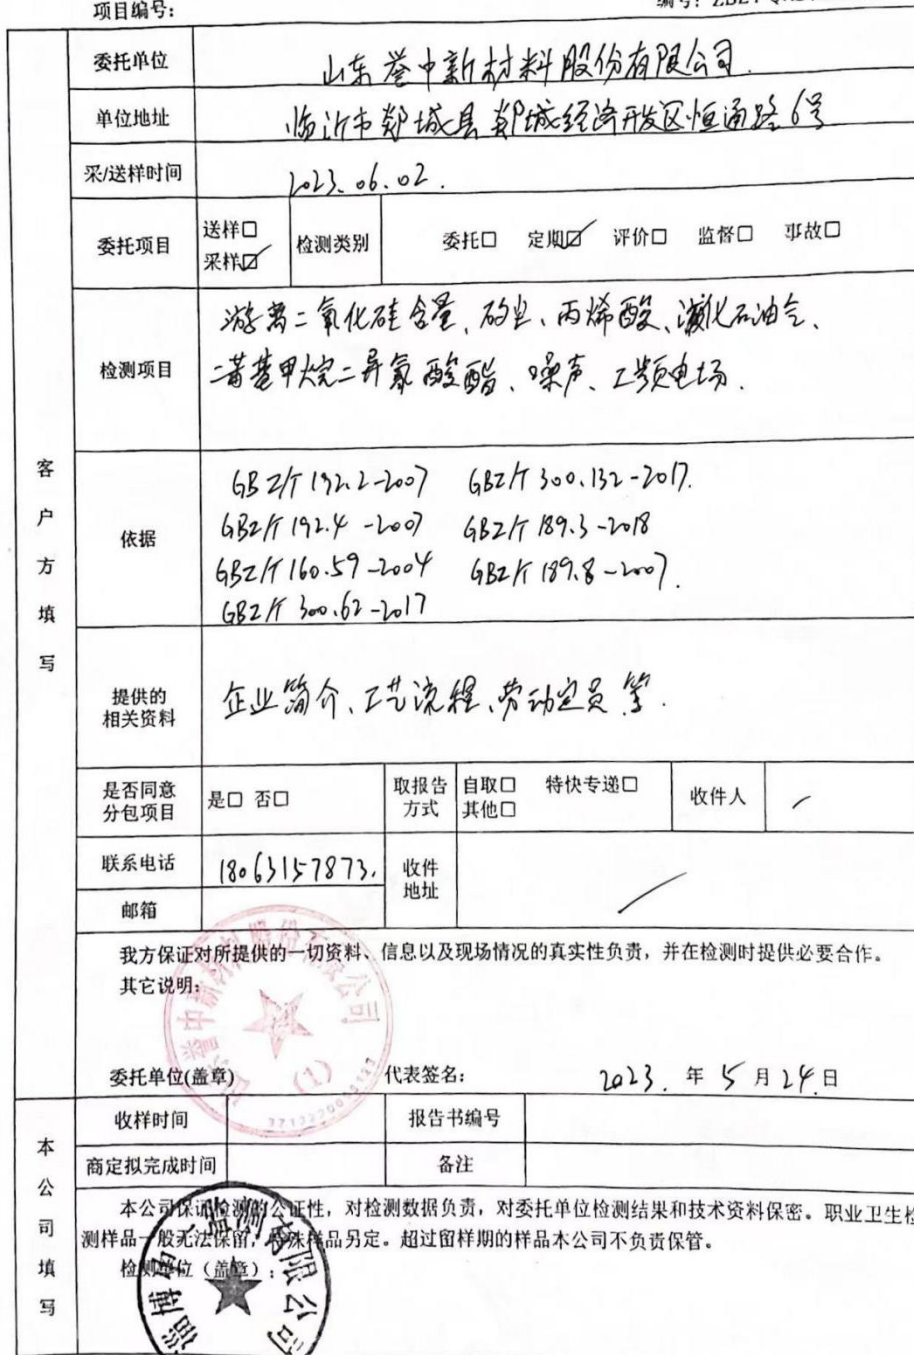 项目编号:
委托单位 山东誉中新材料股份有限公司.
单位地址 临沂市郯城县郯城经济开发区恒通路6号
采/送样时间 2023.06.02.
委托项目 送样□ 采样☑ 检测类别 委托□ 定期☑ 评价□ 监督□ 事故□
检测项目
游离二氧化硅含量、矽尘、丙烯酸、液化石油气、
二苯基甲烷二异氰酸酯、噪声、工频电场.
依据
GBZ/T 192.2-2007 GBZ/T 300.132-2017.
GBZ/T 192.4-2007 GBZ/T 189.3-2018
GBZ/T 160.59-2004 GBZ/T 189.8-2007.
GBZ/T 300.62-2017
客户方填写
提供的
相关资料
企业简介、工艺流程、劳动定员等.
是否同意
分包项目
是□ 否□
取报告
方式
自取□ 特快专递□
其他□
收件人
联系电话 18063157873.
收件
地址
邮箱
我方保证对所提供的一切资料、信息以及现场情况的真实性负责，并在检测时提供必要合作。
其它说明:
中新材料股份有限公司
(1)
委托单位(盖章) 代表签名: 2023.年5月24日
收样时间 报告书编号
商定拟完成时间 备注
本公司填写
本公司保证检测的公证性，对检测数据负责，对委托单位检测结果和技术资料保密。职业卫生检
测样品一般无法保留，特殊样品另定。超过留样期的样品本公司不负责保管。
检测单位（盖章）:
淄博
监测有限公司